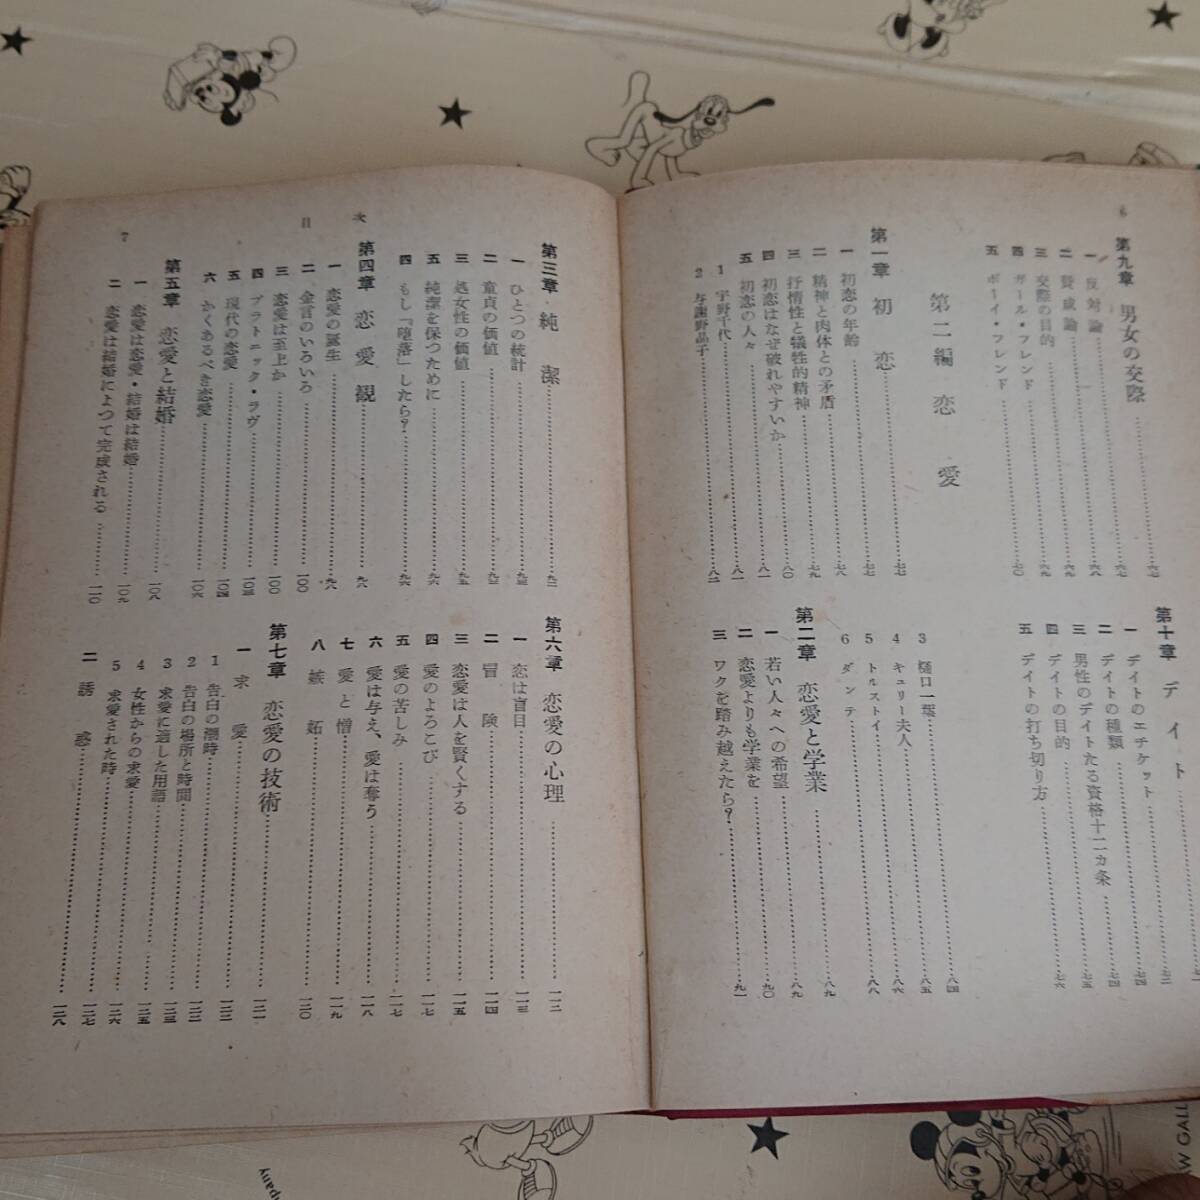 6
第九章 男女の交際……六七
一 反対論……六七
二 賛成論……六八
三 交際の目的……六九
四 ガール・フレンド……六九
五 ボーイ・フレンド……七〇
第二編 恋愛
第一章 初恋……七七
一 初恋の年齢……七七
二 精神と肉体との矛盾……七八
三 抒情性と犠牲的精神……七九
四 初恋はなぜ破れやすいか……八〇
五 初恋の人々……八一
1 宇野千代……八一
2 与謝野晶子……八二
第十章 デイト
一 デイトのエチケット……七三
二 デイトの種類……七四
三 男性のデイトたる資格十二カ条……七四
四 デイトの目的……七五
五 デイトの打ち切り方……七六
3 樋口一葉……八四
4 キュリー夫人……八五
5 トルストイ……八六
6 ダンテ……八八
第二章 恋愛と学業……八九
一 若い人々への希望……八九
二 恋愛よりも学業を……九〇
三 ワクを踏み越えたら?……九一
目次
7
第三章 純潔……九二
一 ひとつの統計……九三
二 童貞の価値……九三
三 処女性の価値……九五
五 純潔を保つために……九六
四 もし「堕落」したら?……九六
第四章 恋愛観……九八
一 恋愛の誕生……九八
二 金言のいろいろ……一〇〇
三 恋愛は至上か……一〇〇
四 プラトニック・ラヴ……一〇三
五 現代の恋愛……一〇四
六 かくあるべき恋愛……一〇六
第五章 恋愛と結婚……一〇八
一 恋愛は恋愛・結婚は結婚……一〇九
二 恋愛は結婚によつて完成される……一一〇
第六章 恋愛の心理……一一二
一 恋は盲目……一一三
二 冒険……一一四
三 恋愛は人を賢くする……一一五
四 愛のよろこび……一一七
五 愛の苦しみ……一一七
六 愛は与え、愛は奪う……一一八
七 愛と憎……一一九
八 嫉妬……一二〇
第七章 恋愛の技術……一二一
一 求愛……一二二
1 告白の潮時……一二二
2 告白の場所と時間……一二三
3 求愛に適した用語……一二三
4 女性からの求愛……一二五
5 求愛された時……一二六
二 誘惑……一二七
……一二八
mpany
W GALL